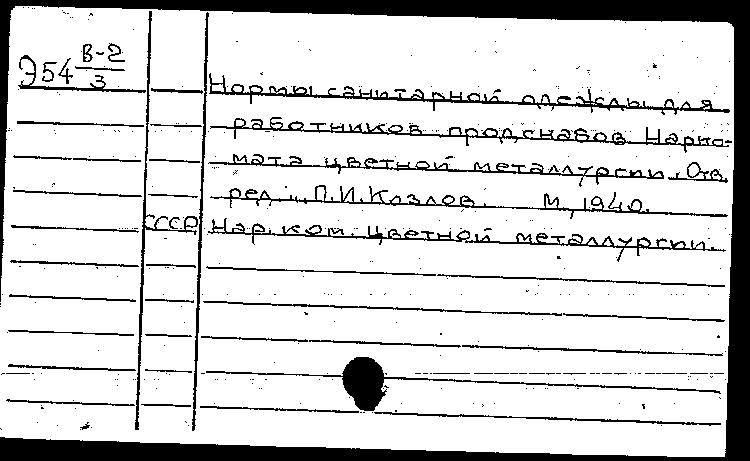 Э54 В-2/3
Нормы санитарной одежды для
работников продснабов Нарко-
мата цветной металлургии. Отв.
ред.: П.И.Козлов. М., 1940.
СССР Нар. ком. цветной металлургии.